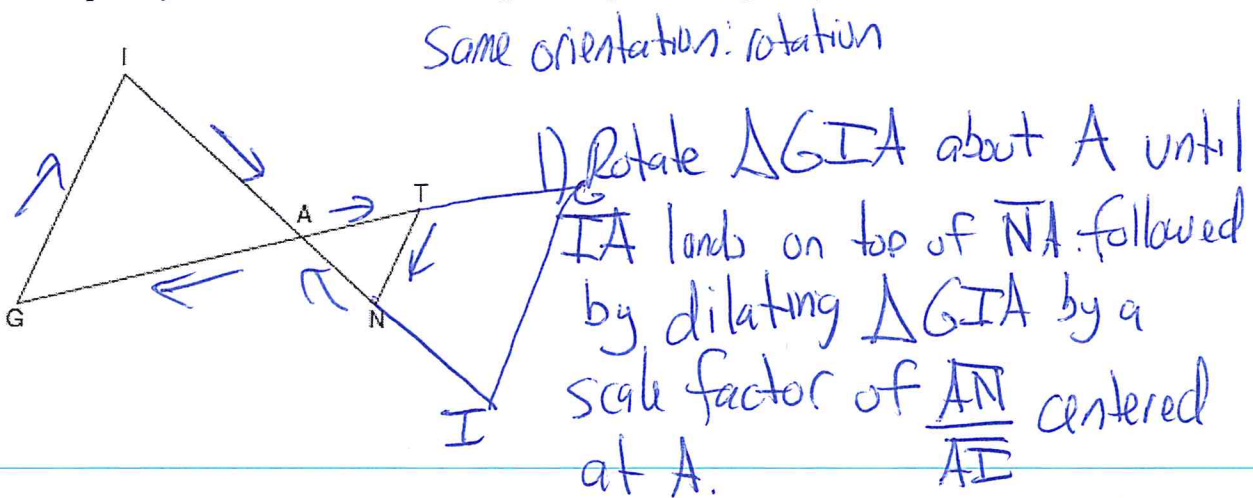 Same orientation: rotation
I
1) Rotate △GIA about A until
T
G
A
IA lands on top of NA followed
G
N
by dilating △GIA by a
scale factor of AN/AI centered
I
at A.